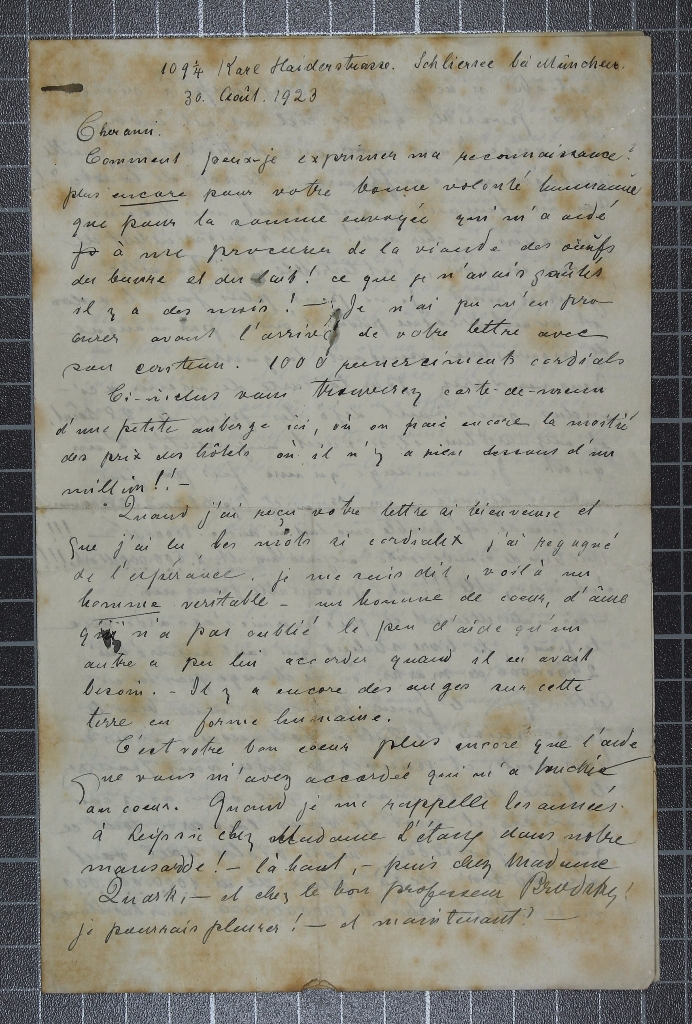 109¼ Karl Haiderstrasse. Schliersee bei München.
30. Août. 1923
Cher ami.
Comment peux-je exprimer ma reconnaissance?
plus encore pour votre bonne volonté humaine
que pour la somme envoyée qui m'a aidé
à me procurer de la viande des oeufs
du beurre et du lait! ce que je n'avais goûtés
il y a des mois! — Je n'ai pu m'en pro
curer avant l'arrivé de votre lettre avec
son contenu. 1000 remerciments cordials
Ci-inclus vous trouverez carte-de-menu
d'une petite auberge ici, où on paie encore la moitié
des prix des hôtels où il n'y a rien dessous d'un
million!! —
Quand j'ai reçu votre lettre si bienvenue et
que j'ai lu les mots si cordialex j'ai regagné
de l'espérance. je me suis dit, voilà un
homme veritable — un homme de coeur, d'âme
qui n'a pas oublié le peu d'aide qu'un
autre a pu lui accorder quand il en avait
besoin. — Il y a encore des anges sur cette
terre en forme humaine.
C'est votre bon coeur plus encore que l'aide
que vous m'avez accordée qui m'a touchée
au coeur. Quand je me rappelle les années
à Leipsic chez Madame L'étang dans notre
mansarde! — là haut, — puis chez Madame
Quark, — et chez le bon professeur Brodsky!
je pourrais pleurer! — et maintenant? —